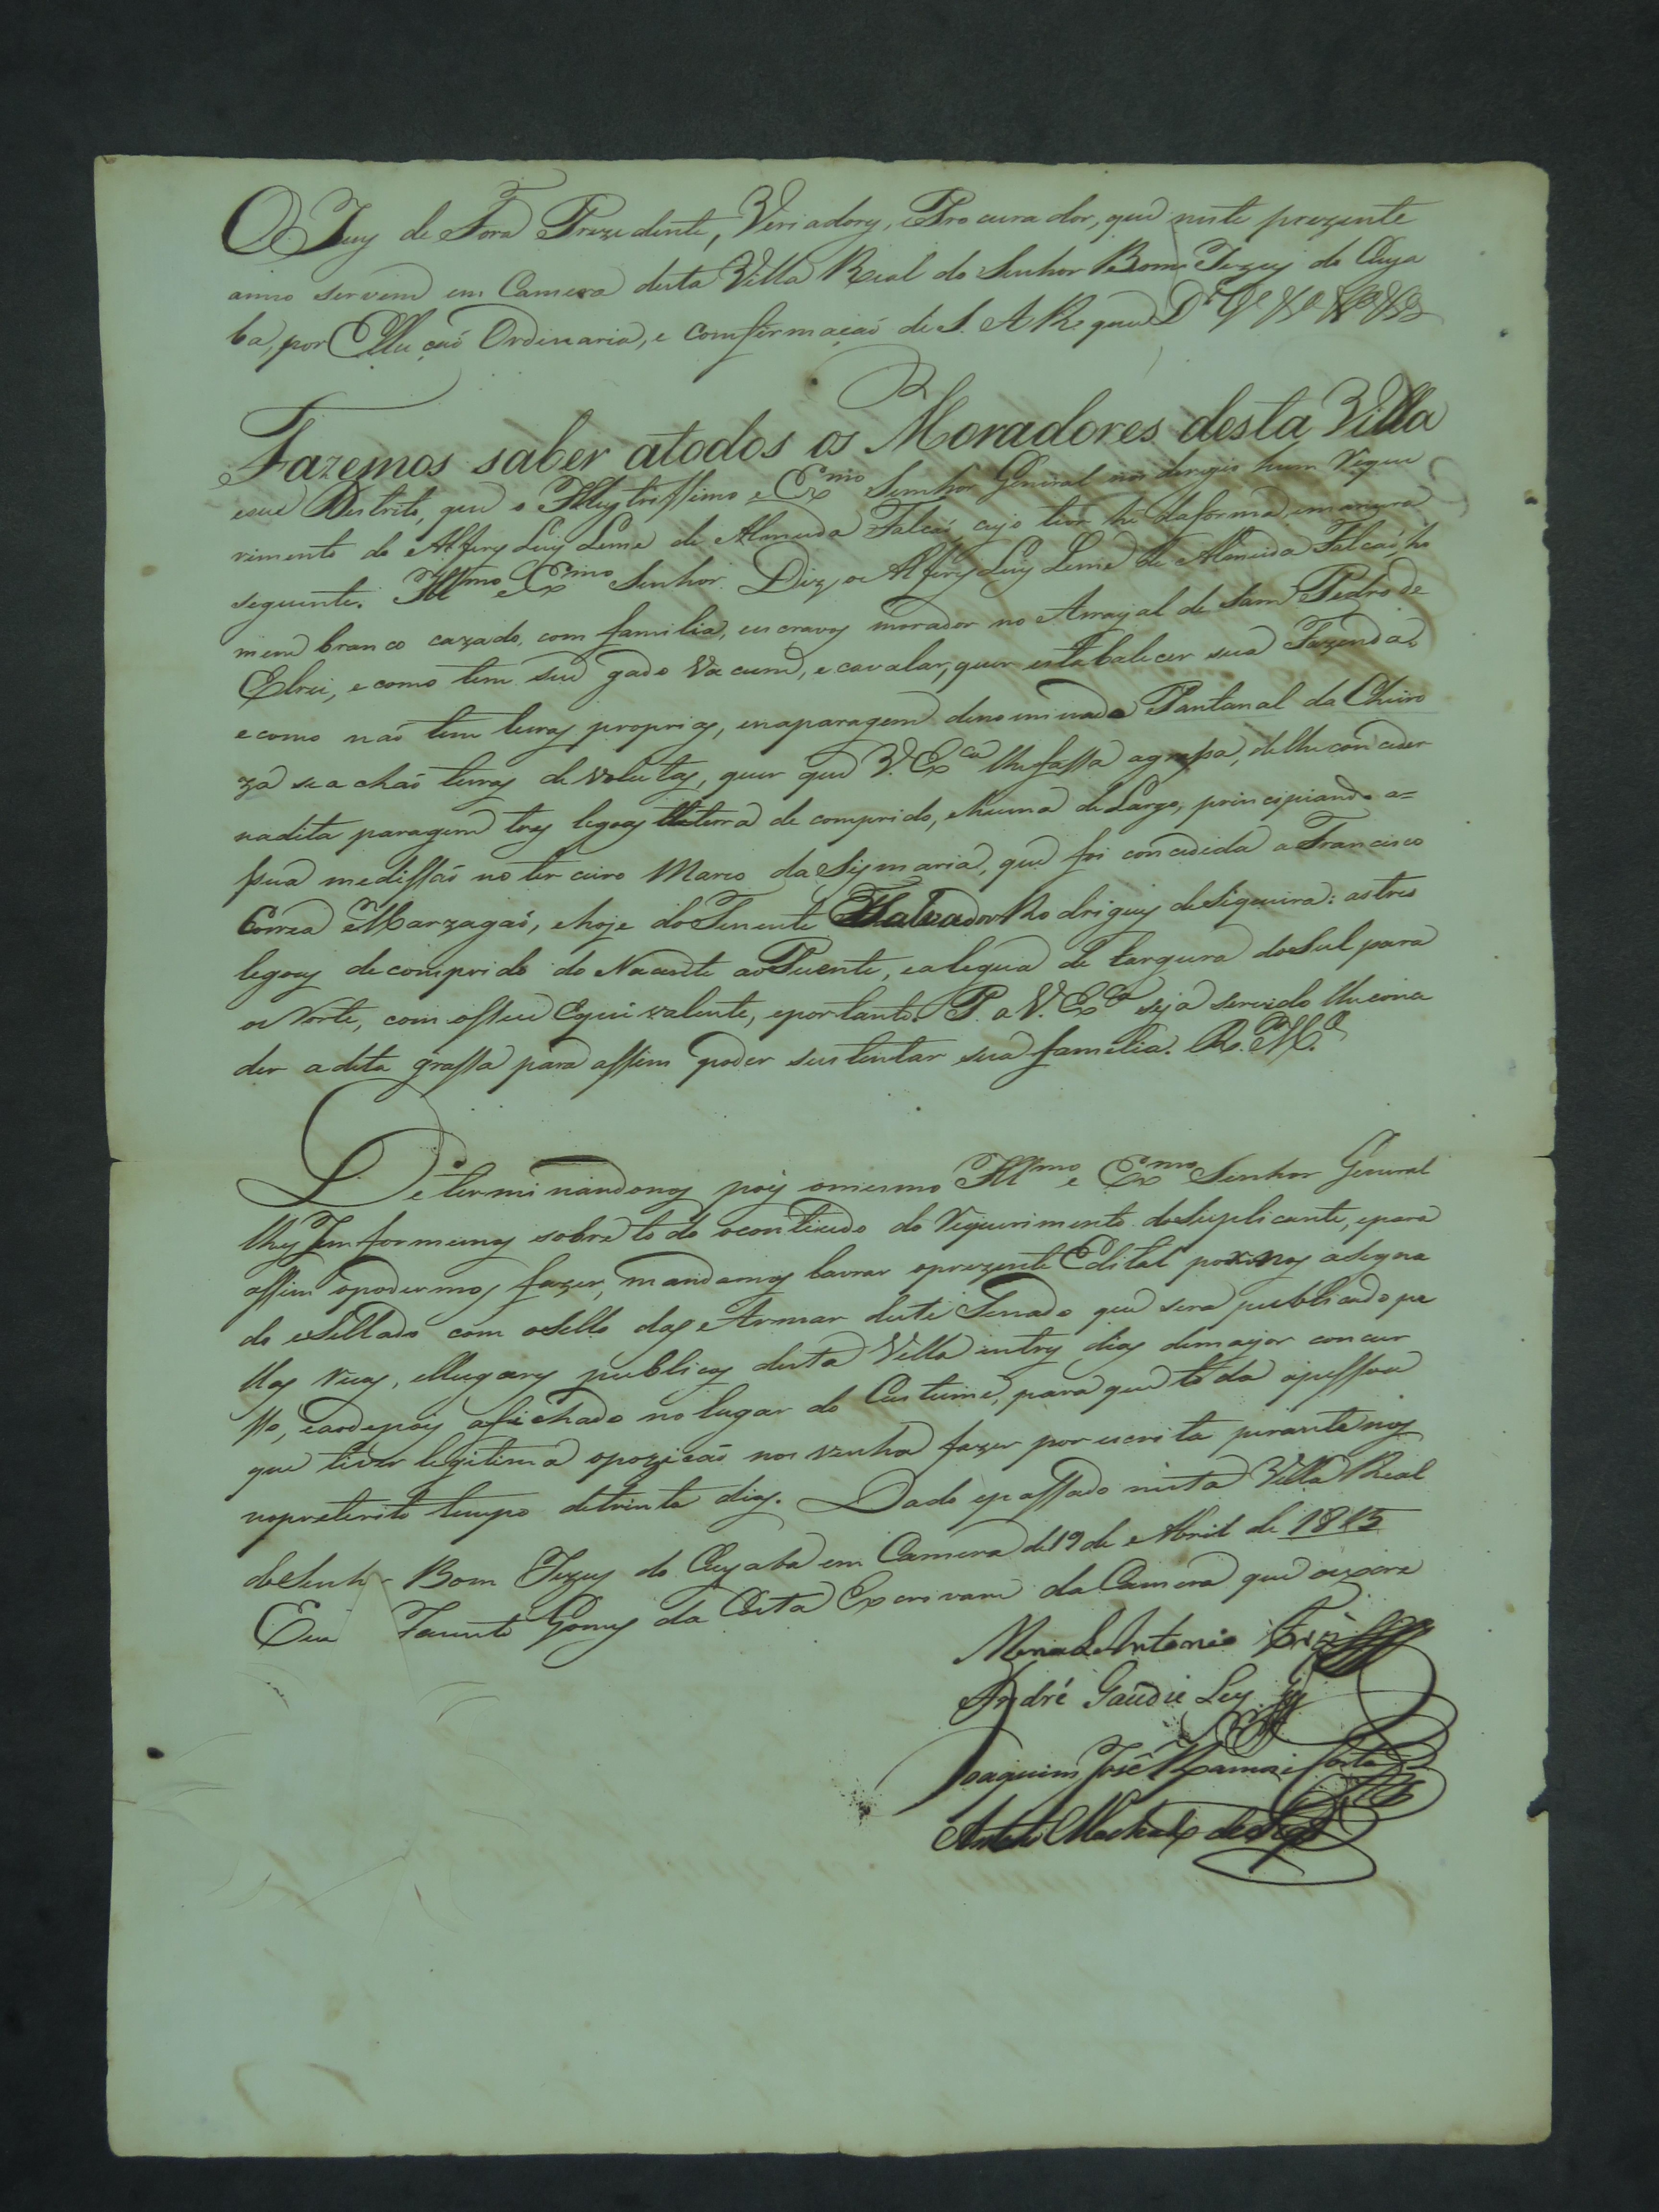 O Juiz de Fora Prezidente, Veriadores, e Procurador, que neste prezente
anno servem em Camera desta Villa Real do Senhor Bom Jezus do Cuya
ba, por Elleição Ordinaria, e comfirmação de S. A R. que D.s G.e
Fazemos saber atodos os Moradores desta Villa
eseu Destrito, que o Illustrissimo e Ex.mo Senhor General nos derigio hum reque
rimento do Alferes Luis Leme de Almeida Falcaõ, cujo teor hé daforma, emaneira
seguinte. Ill.mo e Ex.mo Senhor. Diz o Alferes Luis Leme de Almeida Falcaõ, ho
mem branco cazado, com familia, escravos morador no Arrayal de Sam Pedro de
Elrei, ecomo tem seu gado vacum, e cavalar, quer estabalecer sua Fazenda,
ecomo naõ tem terras proprias, enaparagem denominada Pantanal da Chiro
za se achaõ terras devolutas, quer que V. Ex.ca lhe fassa agrassa, delhe conceder
nadita paragem tres legoas deterra de comprido, ehuma de Largo, principiando a=
sua medissaõ no terceiro Marco da Sismaria, que foi concedida a Francisco
Correa Marzagaõ, ehoje do Tenente Salvador Rodrigues de Siqueira: as tres
legoas decomprido do Nacente ao Puente, ealegua de largura do Sul para
o Norte, com osseu Equivalente, eportanto. P. a V. Ex.ca seja servido lhe conce
der adita grassa para assim poder sustentar sua familia. E. R. M.ce
Determinandonos pois omesmo Ill.mo e Ex.mo Senhor General
lhe Imformemos sobre todo ocontiudo do requerimento do Suplicante, epara
assim opodermos fazer, mandamos lavrar oprezente Edital por nos asigna
do eSellado com oSello das Armas deste Senado que sera publicado pe
llas ruas, ellugares publicos desta Villa entres dias demayor concur
sso, eaodepois afichado no lugar do Custume, para que toda apessoa
que tiver legitima opozicaõ nos venha fazer por escrita perante nos
nopreterito tempo detrinta dias. Dado epassado nesta Villa Real
do Senhor Bom Jezus do Cuyaba em Camera de 19 de Abril de 1815
Eu Gomes da Costa Escrivam da Camera que oescre
Manoel Antonio
André Gaudie Ley
Joaquim José Ramos e Costa
Antonio Machado de